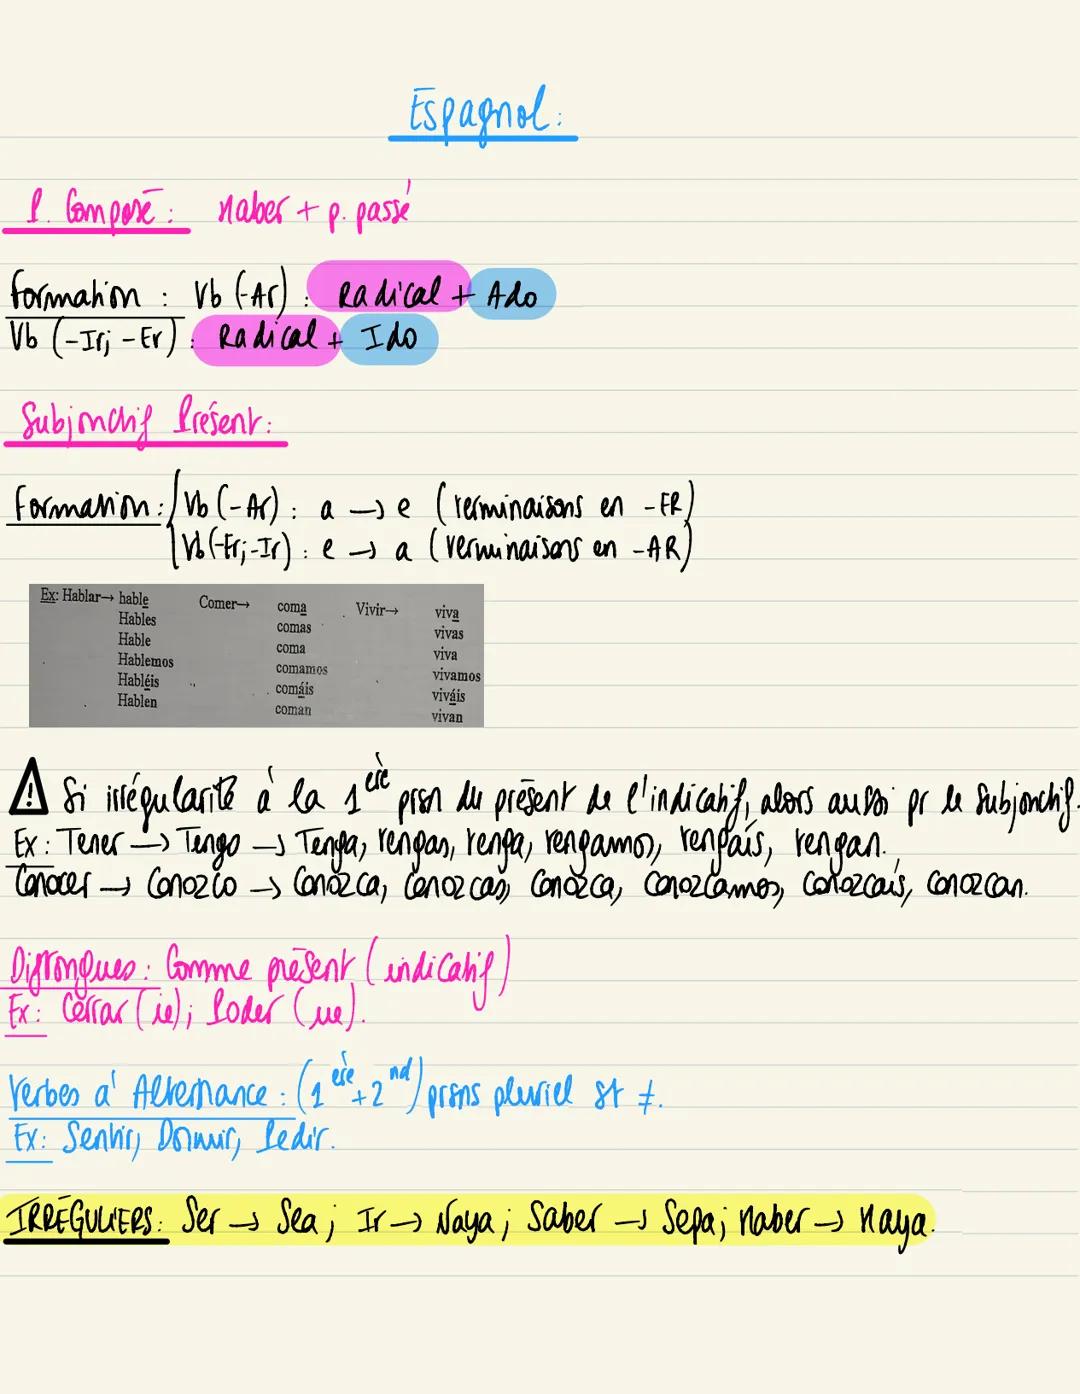 Espagnol:
P. Composé: Haber + p. passé
Formation: Vb (-Ar): Radical + Ado
Vb (-Ir; -Er): Radical + Ido
Subjonctif Présent:
Formation: Vb (-Ar): a → e (terminaisons en -ER)
Vb (-Er; -Ir): e → a (terminaisons en -AR)
Ex: Hablar→ hable Comer→ coma Vivir→ viva
Hables comas vivas
Hable coma viva
Hablemos comamos vivamos
Habléis comáis viváis
Hablen coman vivan
⚠ Si irrégularité à la 1ère prsn du présent de l'indicatif, alors aussi pr le Subjonctif.
Ex: Tener → Tengo → Tenga, tengas, tenga, tengamos, tengaís, tengan.
Conocer → Conozco → Conozca, Conozcas, Conozca, Conozcamos, Conozcaís, Conozcan.
Diftongues: Comme présent (indicatif)
Ex: Cerrar (ie); Poder (ue).
Verbes à Alternance: (1ère + 2nd) prsns pluriel st ≠.
Ex: Sentir, Dormir, Pedir.
IRRÉGULIERS: Ser → Sea; Ir → Vaya; Saber → Sepa; Haber → Haya.